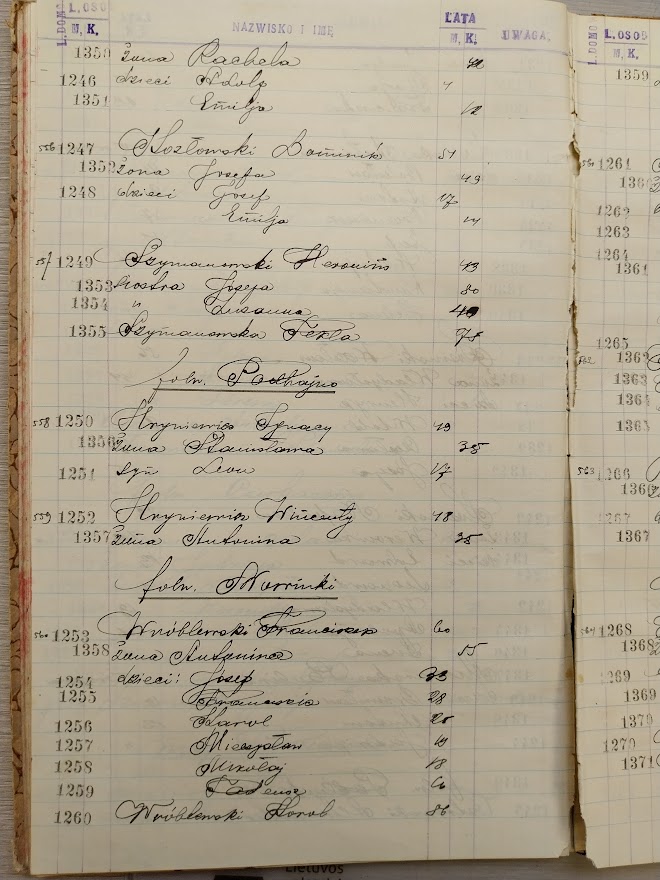 L. DOMO L. OSO NAZWISKO I IMĘ LATA UWAGA. L. DOMO L. OSOB
M. K. M. K. M. K.
1350 żona Rachela
1246 dzieci Adolf
1351 Emilja 12
556 1247 Kozłowski Dominik 51
1352 żona Josefa 49
1248 dzieci Josef 17
Emilja 14
557 1249 Szymanowski Heronim 43
1353 siostra Josefa 80
1354 " Zuzanna
1355 Szymanowska Tekla 78
folw. Podhajno
558 1250 Hryniewicz Ignacy 49
1356 żona Stanisława 35
1251 syn Leon 17
559 1252 Hryniewicz Wincenty 48
1357 żona Antonina 35
folw.
560 1253 Wróblewski Franciszek 60
1358 żona Antonina 55
1254 dzieci: Josef 33
1255 28
1256 Karol
1257 Mieczysław 19
1258 Mikołaj 18
1259 Tadeusz
1260 Wróblewski Karol 86
1359
561 1261
1360
1262
1263
1264
1361
1265
562 1362
1363
1364
1365
563 1266
1366
1267
1367
564 1268
1368
1269
1369
1370
1270
1371
Lietuvos